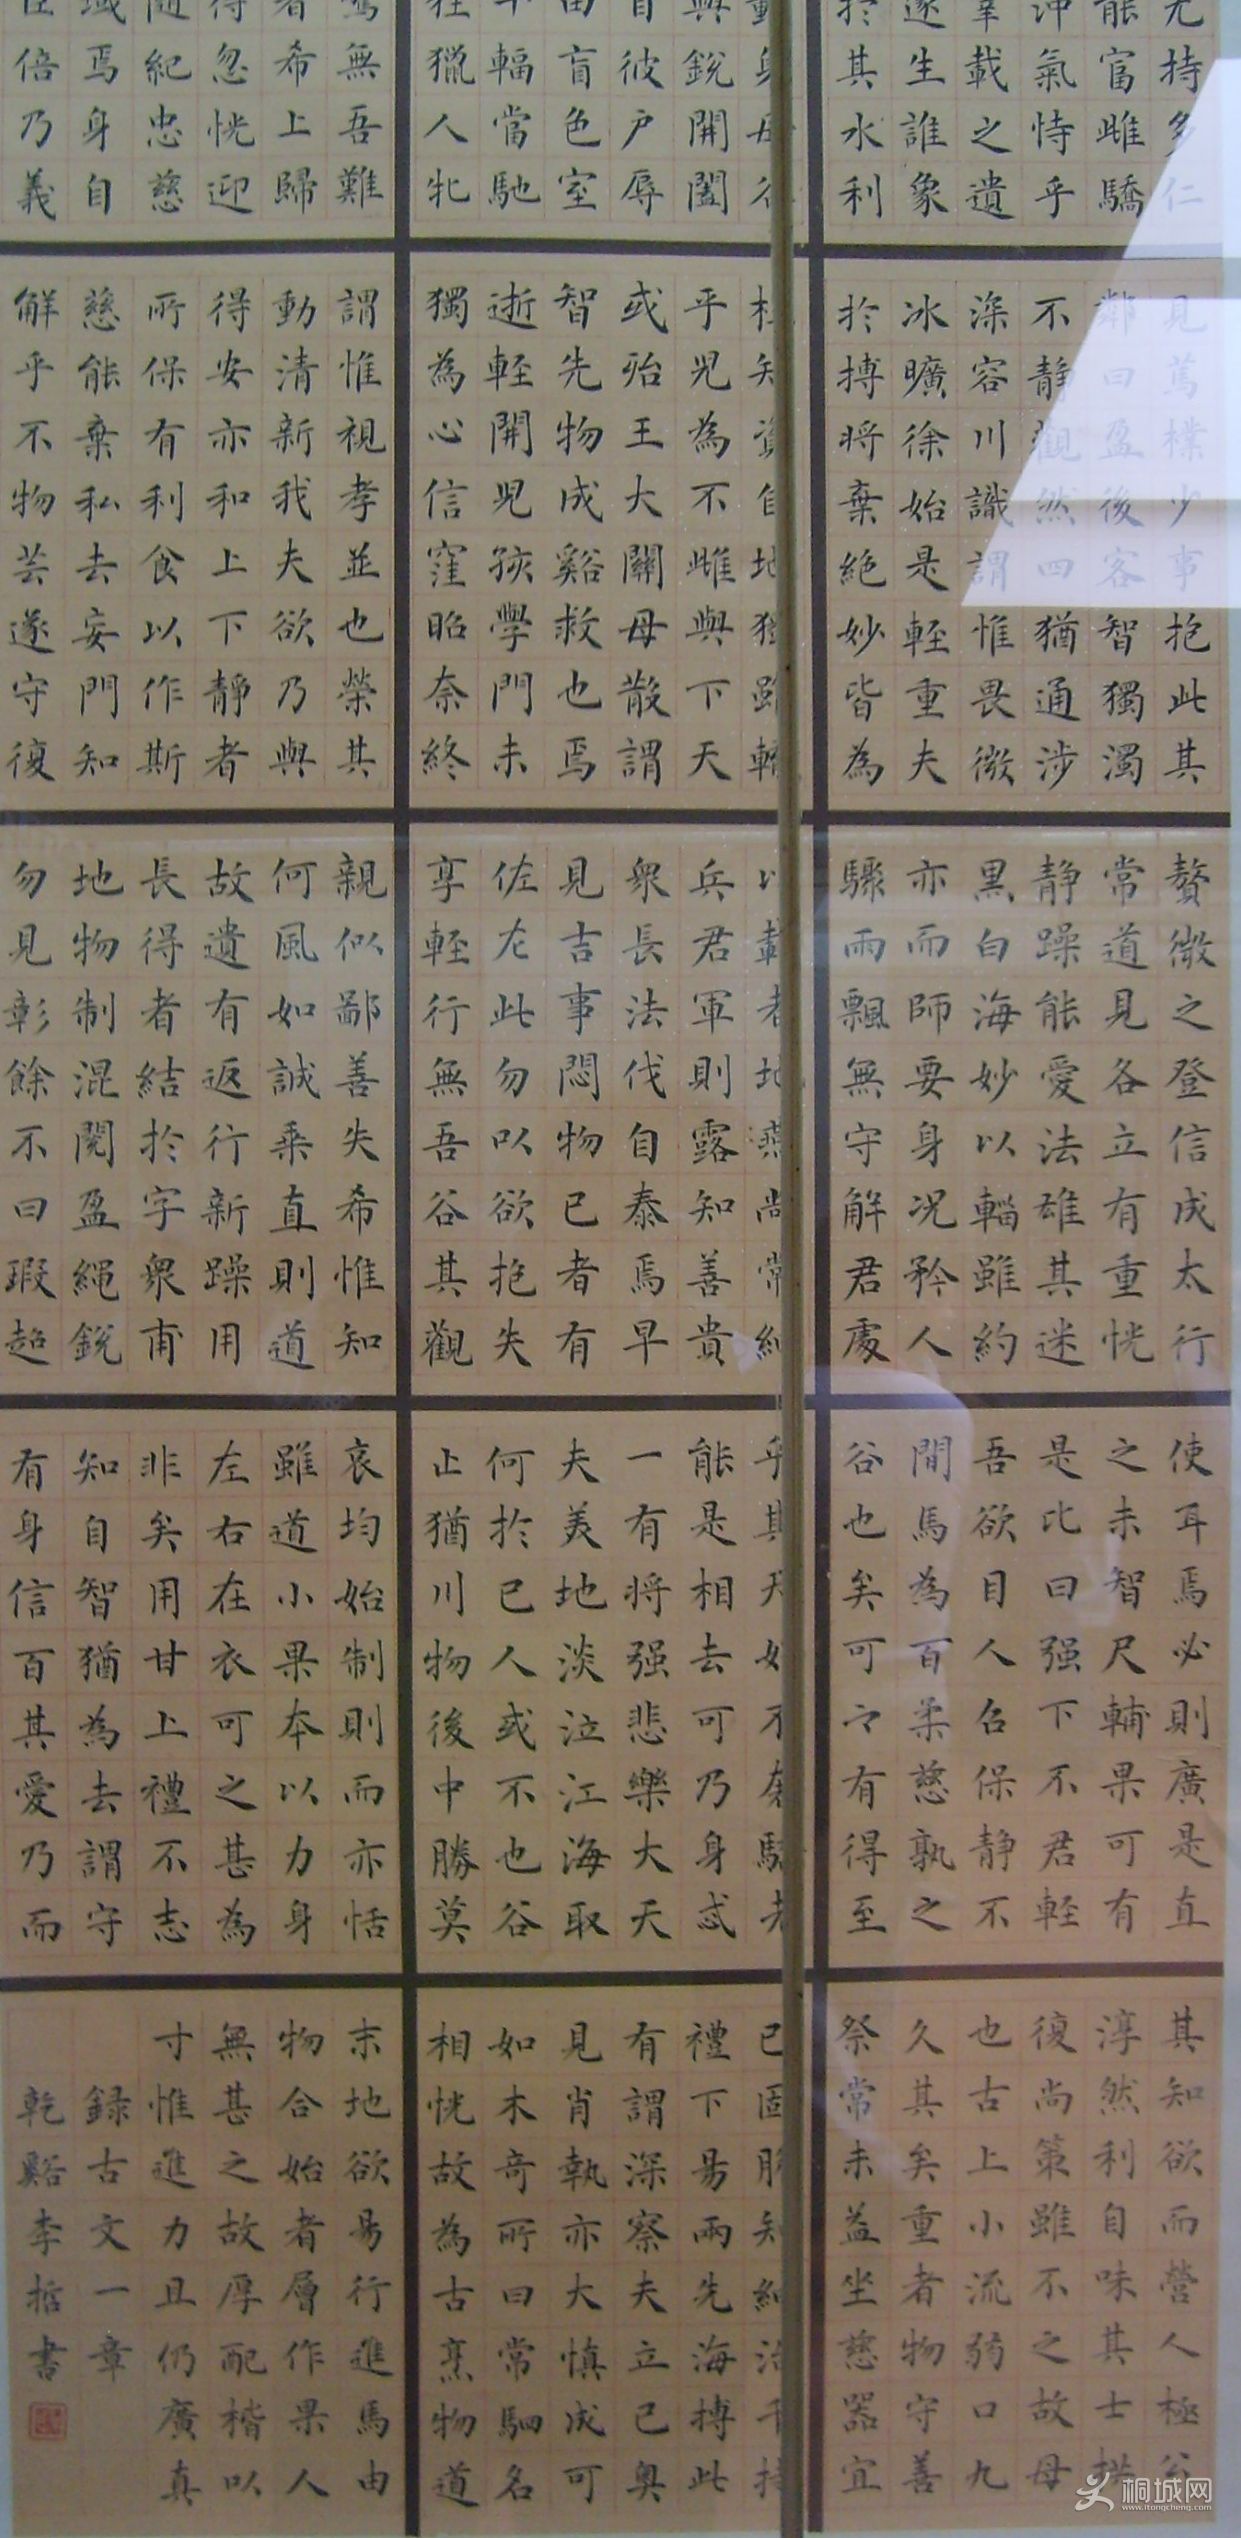 持
能富雌驕
沖氣恃乎
載之遺
遂生誰象
於其水利
與銳開闔
自彼戶辱
盲色室
輻當馳
獵人牝
無吾難
者希上歸
忽恍迎
隨紀忠慈
域焉身自
倍乃義
見篤樸少事抱此其
鄰曰盈後客智獨濁
不靜觀然四猶通涉
深容川識謂惟畏微
冰曠徐始是輕重夫
於搏將棄絕妙皆為
乎兕為不雌與下天
或殆王大關母散謂
智先物成谿救也焉
逝輕開兕孩學門未
獨為心信窪昭奈終
謂惟視孝並也榮其
動清新我夫欲乃與
得安亦和上下靜者
所保有利食以作斯
慈能棄私去妄門知
解乎不物芸遂守復
贅微之登信成太行
常道見各立有重恍
靜躁能愛法雄其迷
黑白海妙以輜雖約
亦而師要身況矜人
驟雨飄無守解君處
兵君軍則露知善貴
眾長法伐自泰焉早
見吉事悶物已者有
佐左此勿以欲抱失
享輕行無吾谷其觀
親似鄙善失希惟知
何風如誠乘直則道
故遺有返行新躁用
長得者結於字眾甫
地物制混閱盈繩銳
勿見彰餘不曰瑕超
使耳焉必則廣是直
之未智尺輔果可有
是比曰强下不君輕
吾欲目人名保靜不
間馬為百柔慈孰之
谷也矣可之有得至
能是相去可乃身忒
一有將强悲樂大天
夫美地淡泣江海取
何於已人或不也谷
止猶川物後中勝莫
哀均始制則而亦恬
雖道小果本以力身
左右在衣可之甚為
非矣用甘上禮不志
知自智猶為去謂守
有身信百其愛乃而
其知欲而營人極
淳然利自味其士
復尚策雖不之故母
也古上小流弱口九
久其矣重者物守善
祭常未益坐慈器宜
禮下易兩先海搏此
有謂深察夫立已奧
見肖執亦大慎成可
如木奇所曰常駟名
相恍故為古烹物道
末地欲易行進馬由
物合始者層作果人
無甚之故厚配楷以
寸惟進力且仍廣真
録古文一章
乾谿李哲書
桐城网
www.itongcheng.com